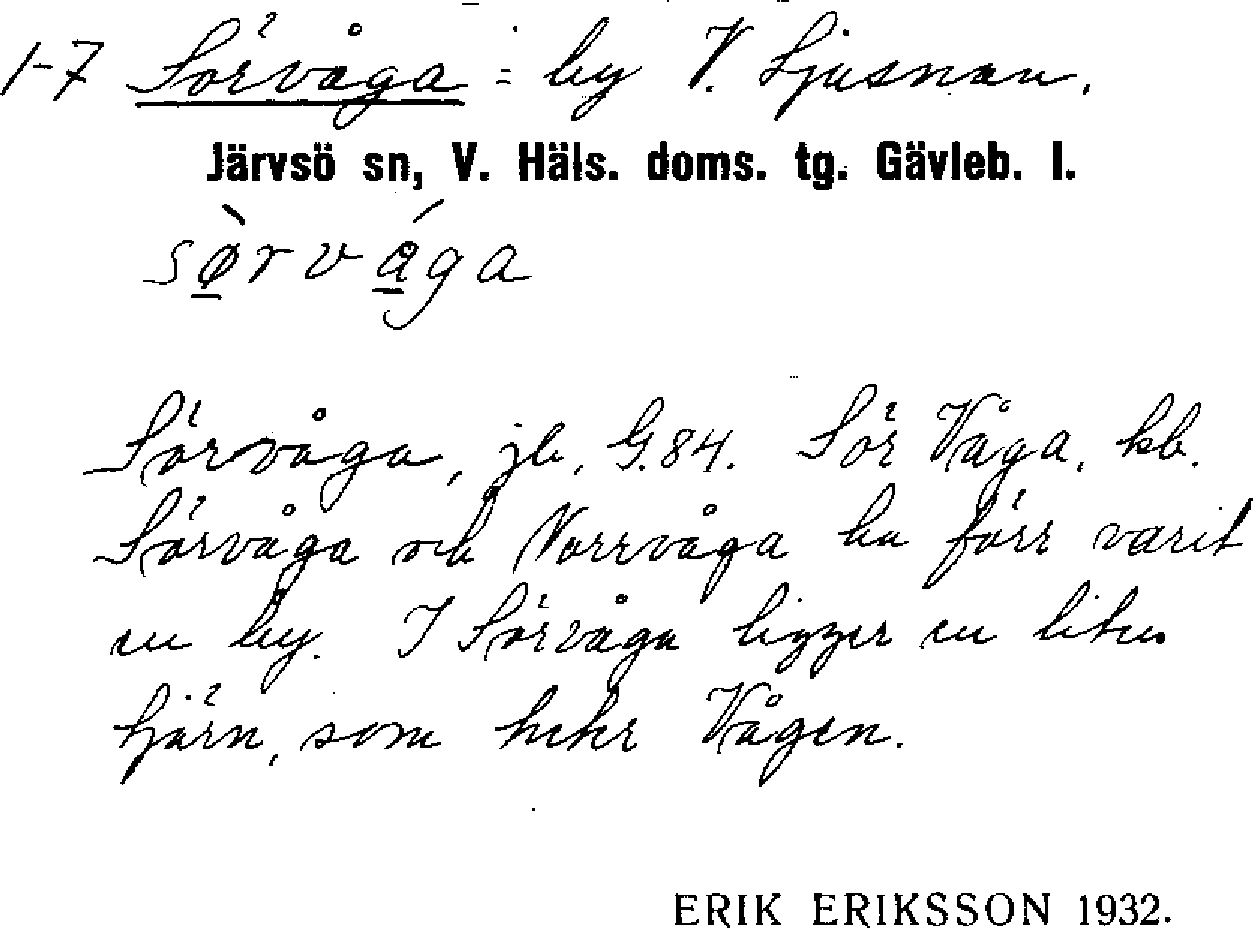 1-7 Sörvåga = by V. Ljusnan.
Järvsö sn, V. Häls. doms. tg. Gävleb. l.
sø̀rvǻga
Sörvåga, jb, G.84. Sör Våga, kb.
Sörvåga och Norrvåga ha förr varit
en by. I Sörvåga ligger en liten
tjärn, som heter Vågen.
ERIK ERIKSSON 1932.